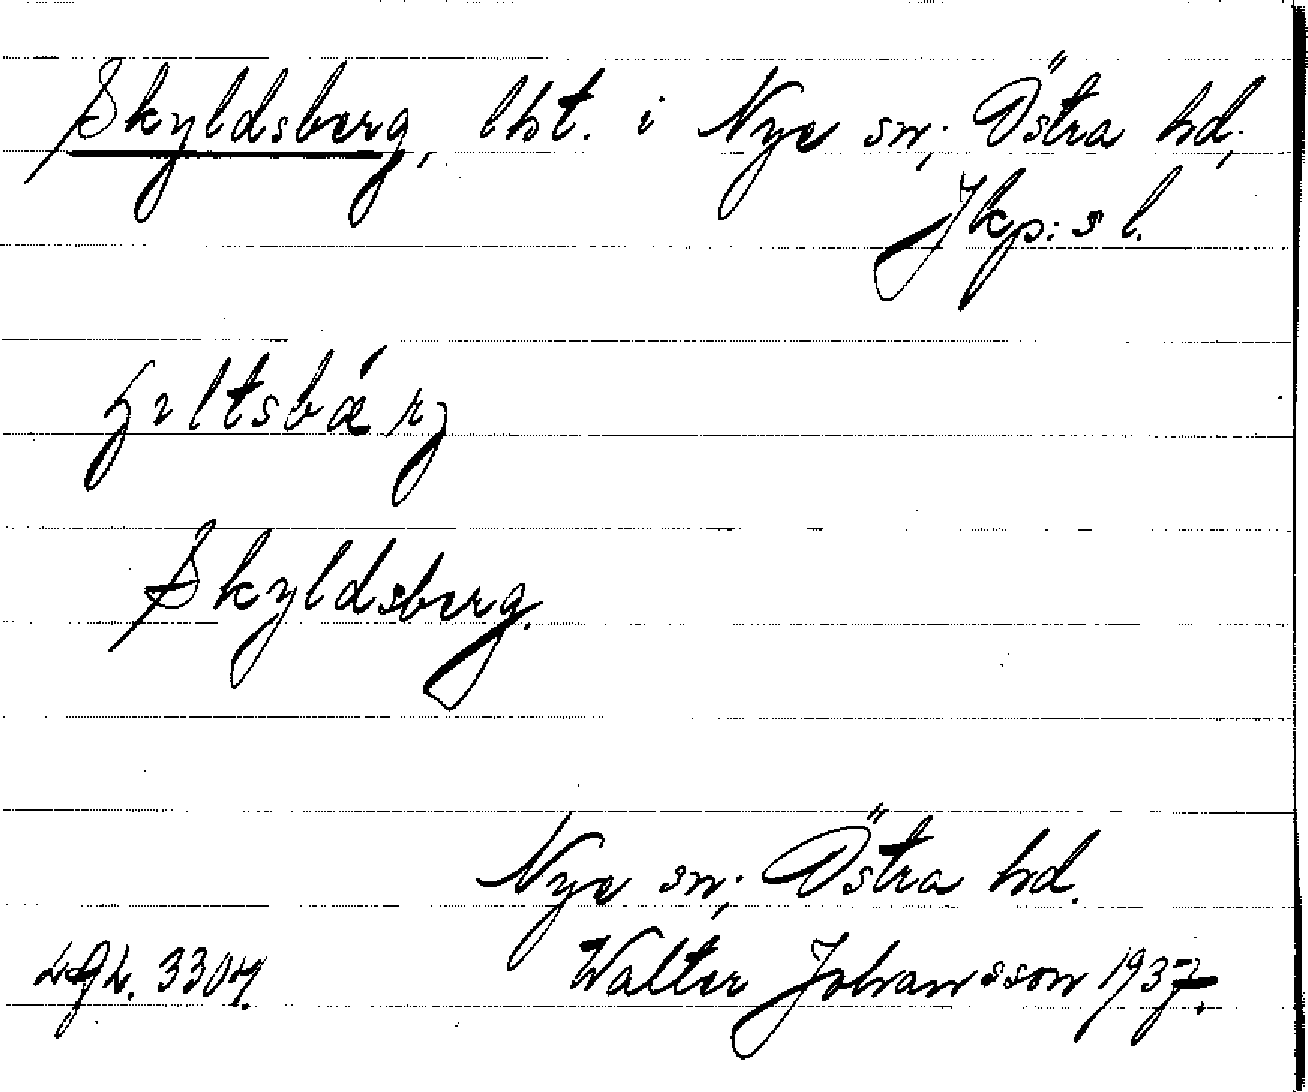 Skyldsberg, lht. i Nye sn; Östra hd,
Jkp:s l.
Skyldsberg.
Nye sn; Östra hd.
Walter Johansson 1937.